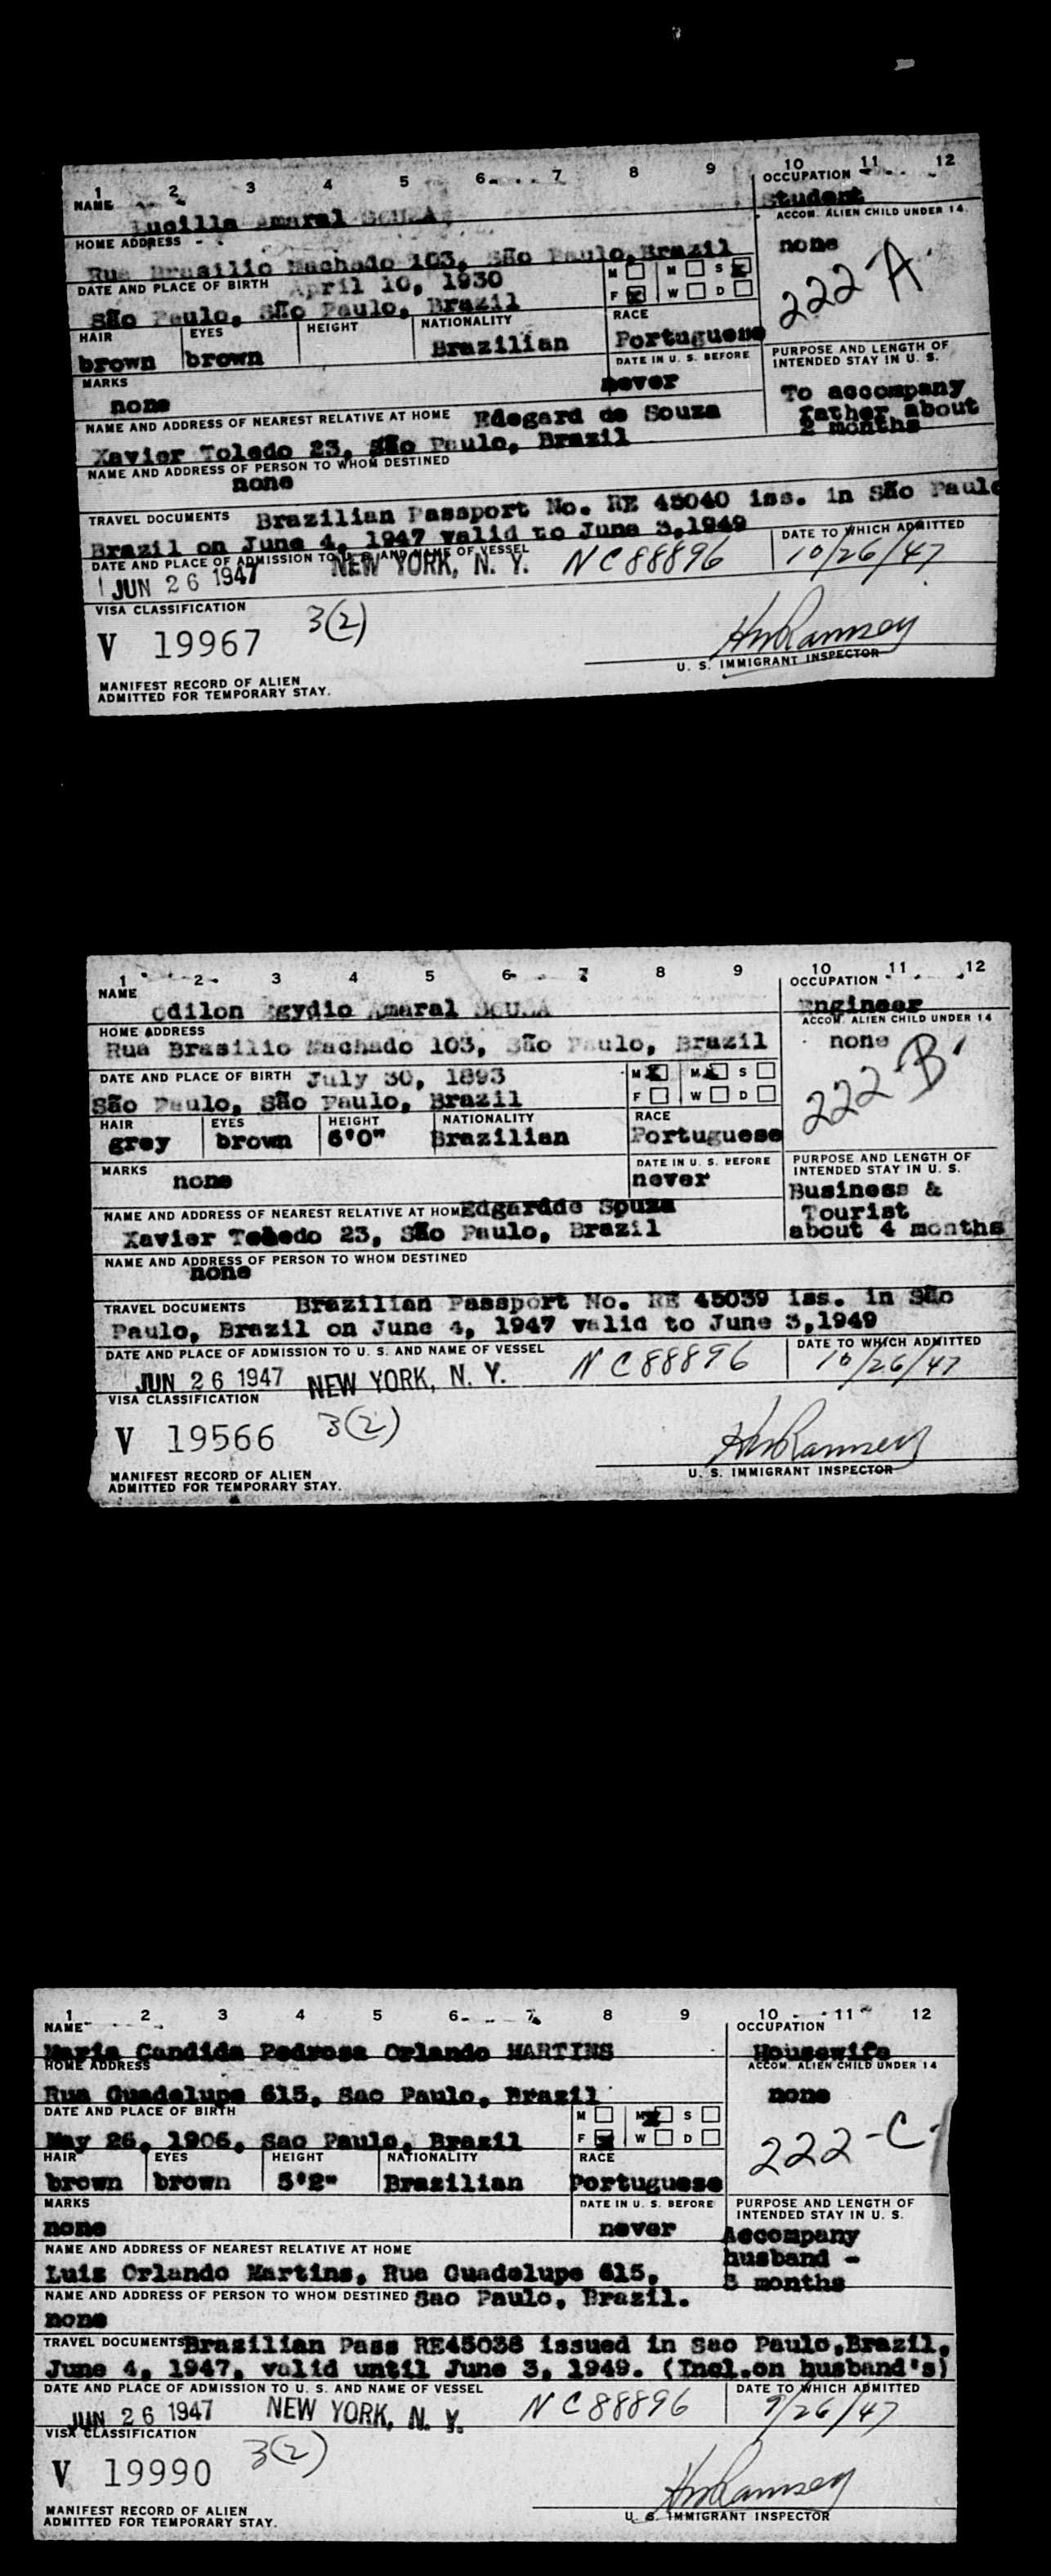 1 2 3 4 5 6 7 8 9 10 11 12
NAME OCCUPATION
Lucilla Amaral SOUZA Student
HOME ADDRESS ACCOM. ALIEN CHILD UNDER 14
Rua Brasilio Machado 103, São Paulo, Brazil none
DATE AND PLACE OF BIRTH April 10, 1930 M M S
222-A
São Paulo, São Paulo, Brazil F W D
HAIR EYES HEIGHT NATIONALITY RACE
brown brown Brazilian Portuguese
MARKS DATE IN U. S. BEFORE PURPOSE AND LENGTH OF INTENDED STAY IN U. S.
none never To accompany
father about
2 months
NAME AND ADDRESS OF NEAREST RELATIVE AT HOME Edegard de Souza
Xavier Toledo 23, São Paulo, Brazil
NAME AND ADDRESS OF PERSON TO WHOM DESTINED
none
TRAVEL DOCUMENTS Brazilian Passport No. RE 45040 iss. in São Paulo
Brazil on June 4, 1947 valid to June 3,1949
DATE AND PLACE OF ADMISSION TO U. S. AND NAME OF VESSEL DATE TO WHICH ADMITTED
JUN 26 1947 NEW YORK, N. Y. NC88896 10/26/47
VISA CLASSIFICATION
V 19967 3(2)
U. S. IMMIGRANT INSPECTOR
MANIFEST RECORD OF ALIEN
ADMITTED FOR TEMPORARY STAY.
1 2 3 4 5 6 7 8 9 10 11 12
NAME OCCUPATION
Odilon Egydio Amaral SOUZA Engineer
HOME ADDRESS ACCOM. ALIEN CHILD UNDER 14
Rua Brasilio Machado 103, São Paulo, Brazil none
DATE AND PLACE OF BIRTH July 30, 1893 M M S
222-B
São Paulo, São Paulo, Brazil F W D
HAIR EYES HEIGHT NATIONALITY RACE
grey brown 6'0" Brazilian Portuguese
MARKS DATE IN U. S. BEFORE PURPOSE AND LENGTH OF INTENDED STAY IN U. S.
none never Business &
Tourist
about 4 months
NAME AND ADDRESS OF NEAREST RELATIVE AT HOME Edgardde Souza
Xavier Toledo 23, São Paulo, Brazil
NAME AND ADDRESS OF PERSON TO WHOM DESTINED
none
TRAVEL DOCUMENTS Brazilian Passport No. RE 45039 iss. in São
Paulo, Brazil on June 4, 1947 valid to June 3,1949
DATE AND PLACE OF ADMISSION TO U. S. AND NAME OF VESSEL DATE TO WHICH ADMITTED
JUN 26 1947 NEW YORK, N. Y. NC88896 10/26/47
VISA CLASSIFICATION
V 19566 3(2)
U. S. IMMIGRANT INSPECTOR
MANIFEST RECORD OF ALIEN
ADMITTED FOR TEMPORARY STAY.
1 2 3 4 5 6 7 8 9 10 11 12
NAME OCCUPATION
Maria Candida Pedrosa Orlando MARTINS Housewife
HOME ADDRESS ACCOM. ALIEN CHILD UNDER 14
Rua Guadelupe 615, Sao Paulo, Brazil none
DATE AND PLACE OF BIRTH M M S
222-C
May 26, 1906, Sao Paulo, Brazil F W D
HAIR EYES HEIGHT NATIONALITY RACE
brown brown 5'2" Brazilian Portuguese
MARKS DATE IN U. S. BEFORE PURPOSE AND LENGTH OF INTENDED STAY IN U. S.
none never Accompany
husband -
3 months
NAME AND ADDRESS OF NEAREST RELATIVE AT HOME
Luiz Orlando Martins, Rua Guadelupe 615,
NAME AND ADDRESS OF PERSON TO WHOM DESTINED Sao Paulo, Brazil.
none
TRAVEL DOCUMENTS Brazilian Pass RE45038 issued in Sao Paulo,Brazil,
June 4, 1947, valid until June 3, 1949. (Incl.on husband's)
DATE AND PLACE OF ADMISSION TO U. S. AND NAME OF VESSEL DATE TO WHICH ADMITTED
JUN 26 1947 NEW YORK, N. Y. NC88896 9/26/47
VISA CLASSIFICATION
V 19990 3(2)
U. S. IMMIGRANT INSPECTOR
MANIFEST RECORD OF ALIEN
ADMITTED FOR TEMPORARY STAY.